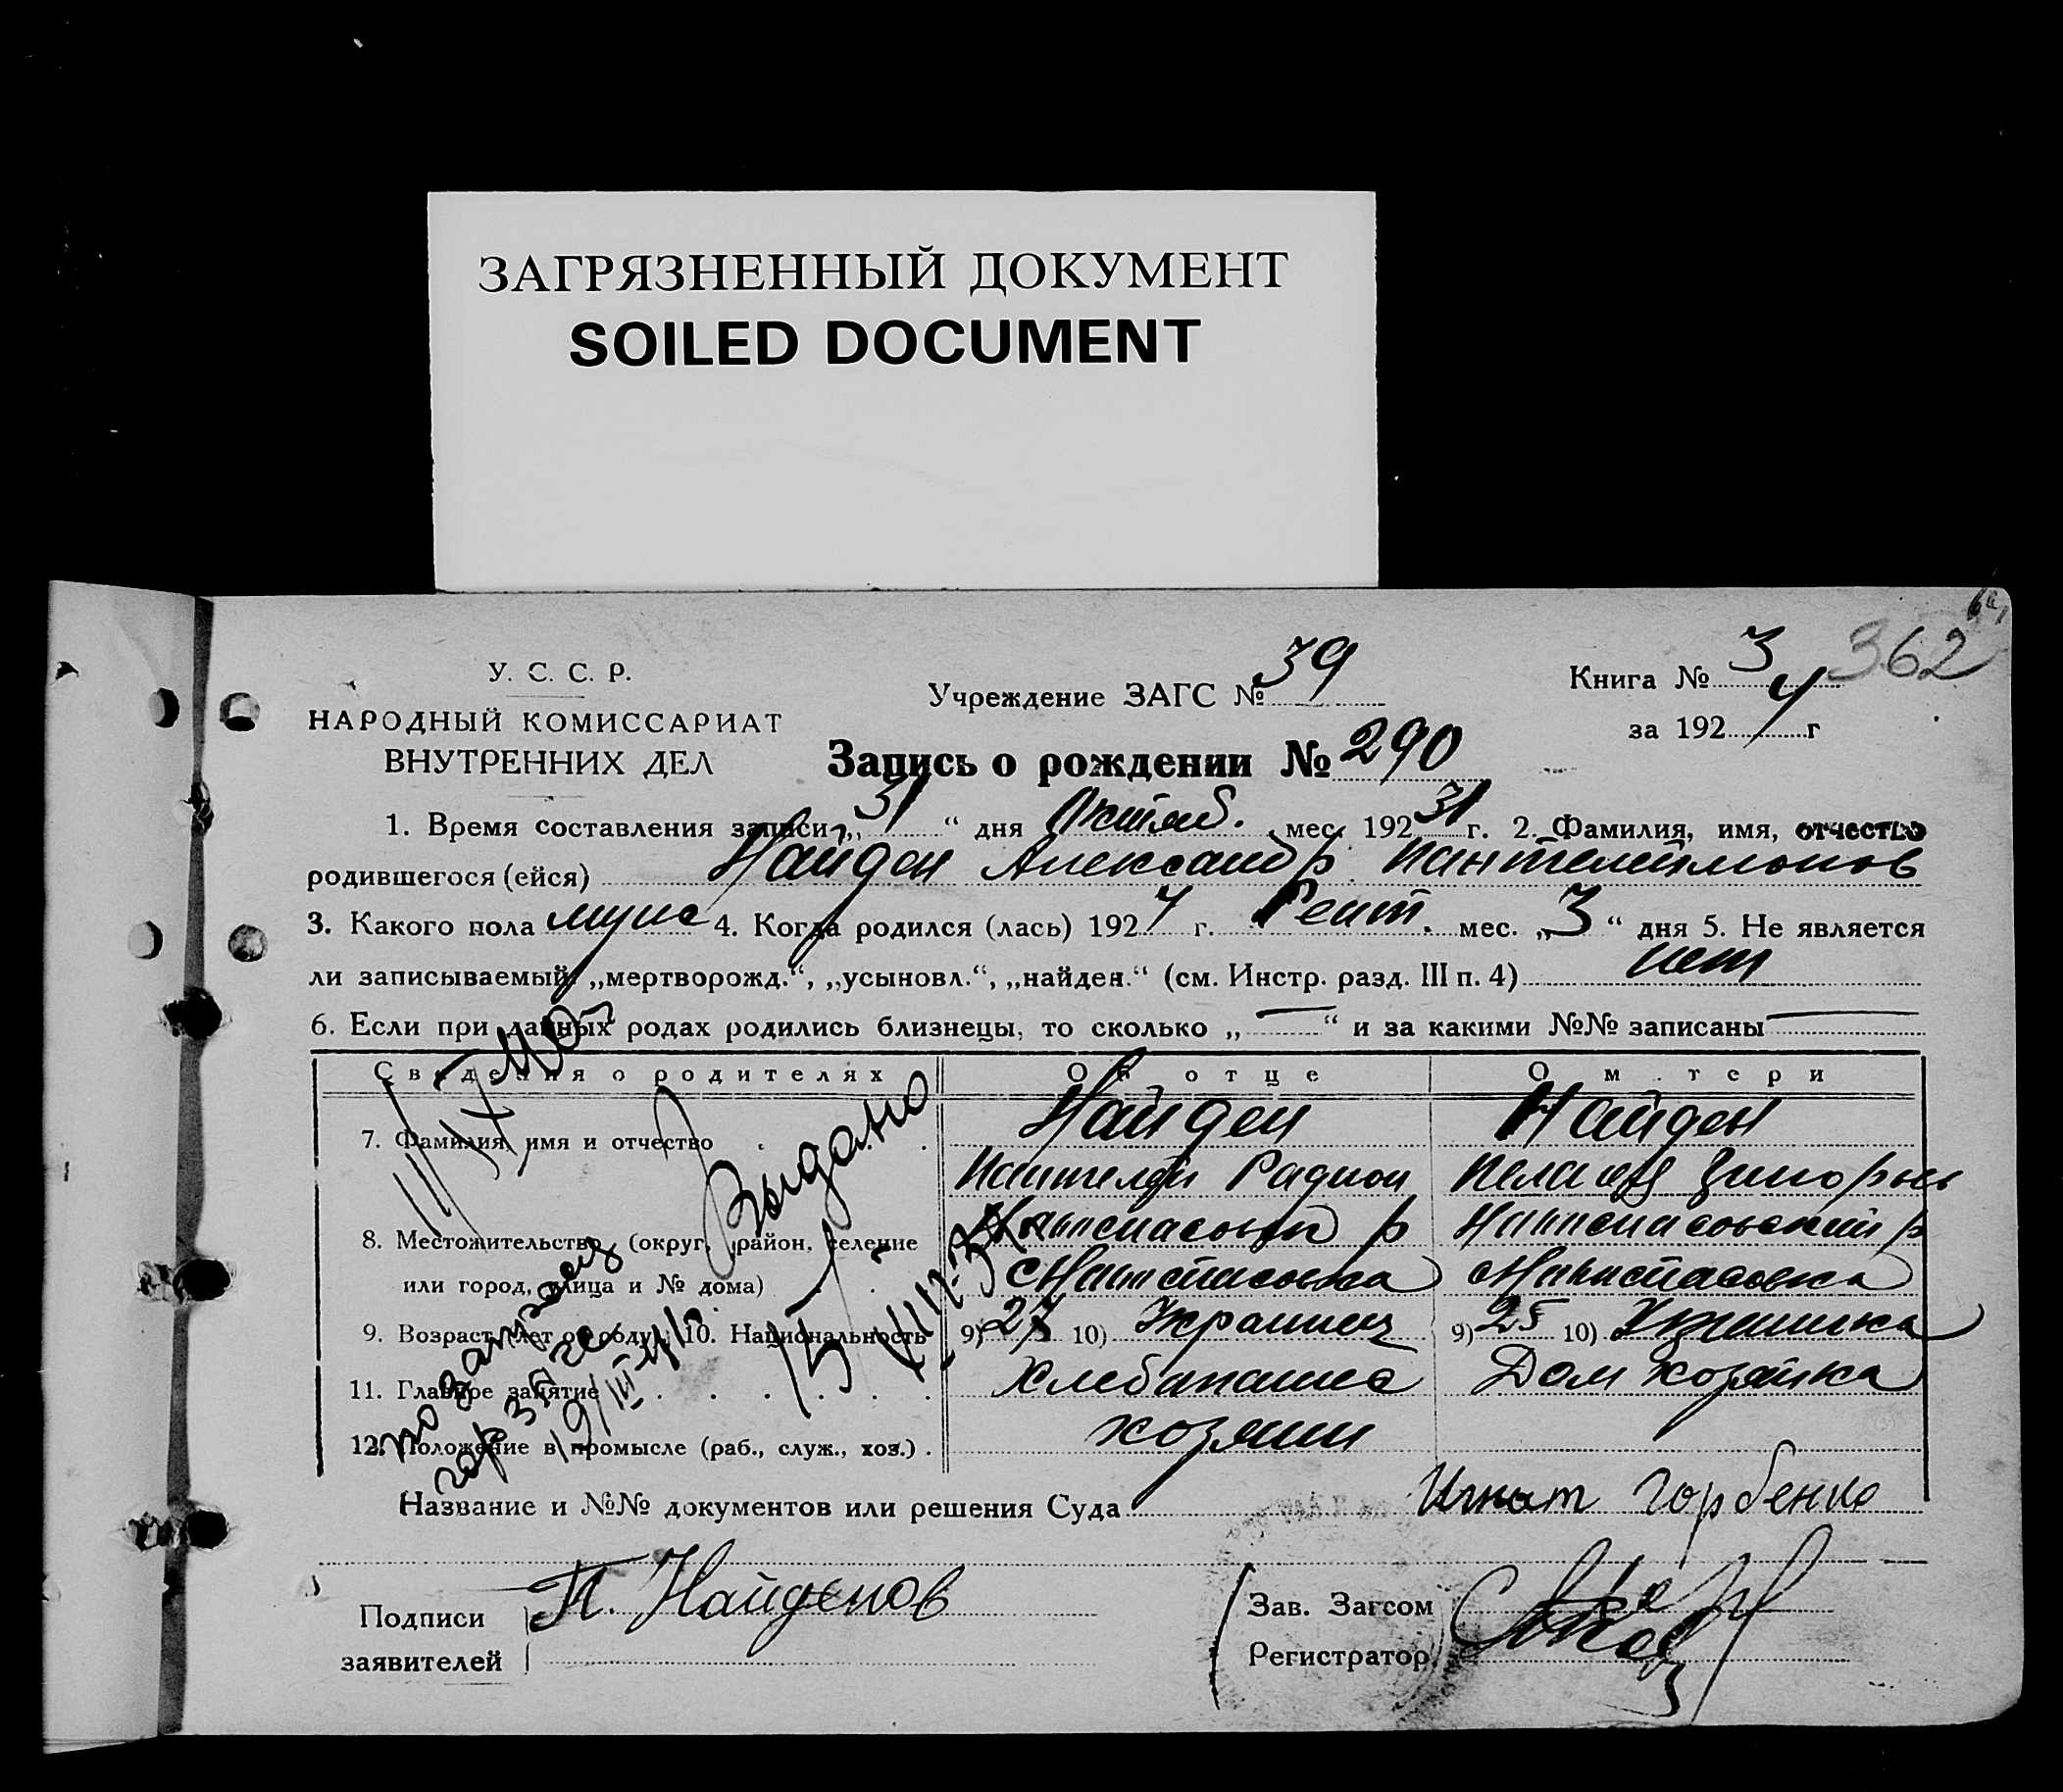 ЗАГРЯЗНЕННЫЙ ДОКУМЕНТ
SOILED DOCUMENT
362
У. С. С. Р.
НАРОДНЫЙ КОМИССАРИАТ
ВНУТРЕННИХ ДЕЛ
Учреждение ЗАГС № 39
Книга № 3
за 192 г
Запись о рождении № 290
1. Время составления записи „31“ дня Октяб. мес. 192 31 г. 2. Фамилия, имя, отчество
родившегося (ейся) Найден Александр Пантелеймонов
3. Какого пола муж 4. Когда родился (лась) 1927 г. Сент. мес. „3“ дня 5. Не является
ли записываемый „мертворожд.“, „усыновл.“, „найден.“ (см. Инстр. разд. III п. 4) нет
6. Если при данных родах родились близнецы, то сколько „—“ и за какими №№ записаны —
Сведения о родителях Об отце О матери
7. Фамилия, имя и отчество Найден Найден
8. Местожительство (округ, район, селение
или город, улица и № дома)
9. Возраст (лет от роду) 10. Национальность 9) 27 10) Украинец 9) 25 10)
11. Главное занятие Хлебопаше Дом хозяйка
12. Положение в промысле (раб., служ., хоз.) хозяин
Выдано
по запросу
гор загса
19/III
Название и №№ документов или решения Суда Игнат Горбенко
Подписи заявителей П. Найденов
Зав. Загсом
Регистратор